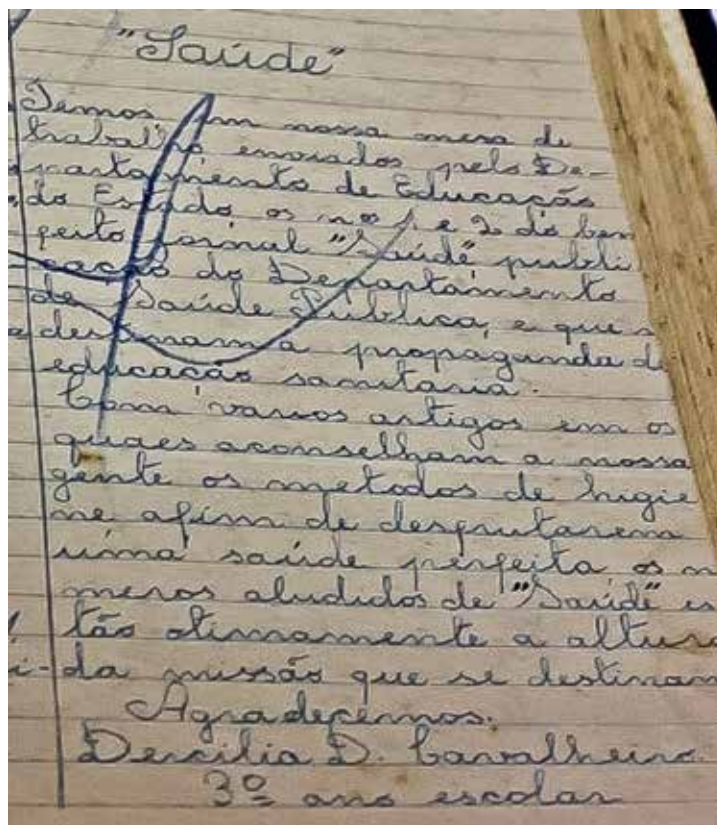 "Saúde"
Temos em nossa mesa de
trabalho enviados pelo De-
partamento de Educação
do Estado os nos 1 e 2 do bem
feito jornal "Saúde" publi
cação do Departamento
de Saúde Pública, e que
destinam a propaganda d
educação sanitaria.
Com varios artigos em os
quaes aconselham a nossa
gente os metodos de higie
ne afim de desfrutarem
uma saúde perfeita, os n
meros aludidos de "Saúde" es
tão otimamente a altura
da missão que se destinam
Agradecemos.
Dercilia D. Cavalheiro
3º ano escolar